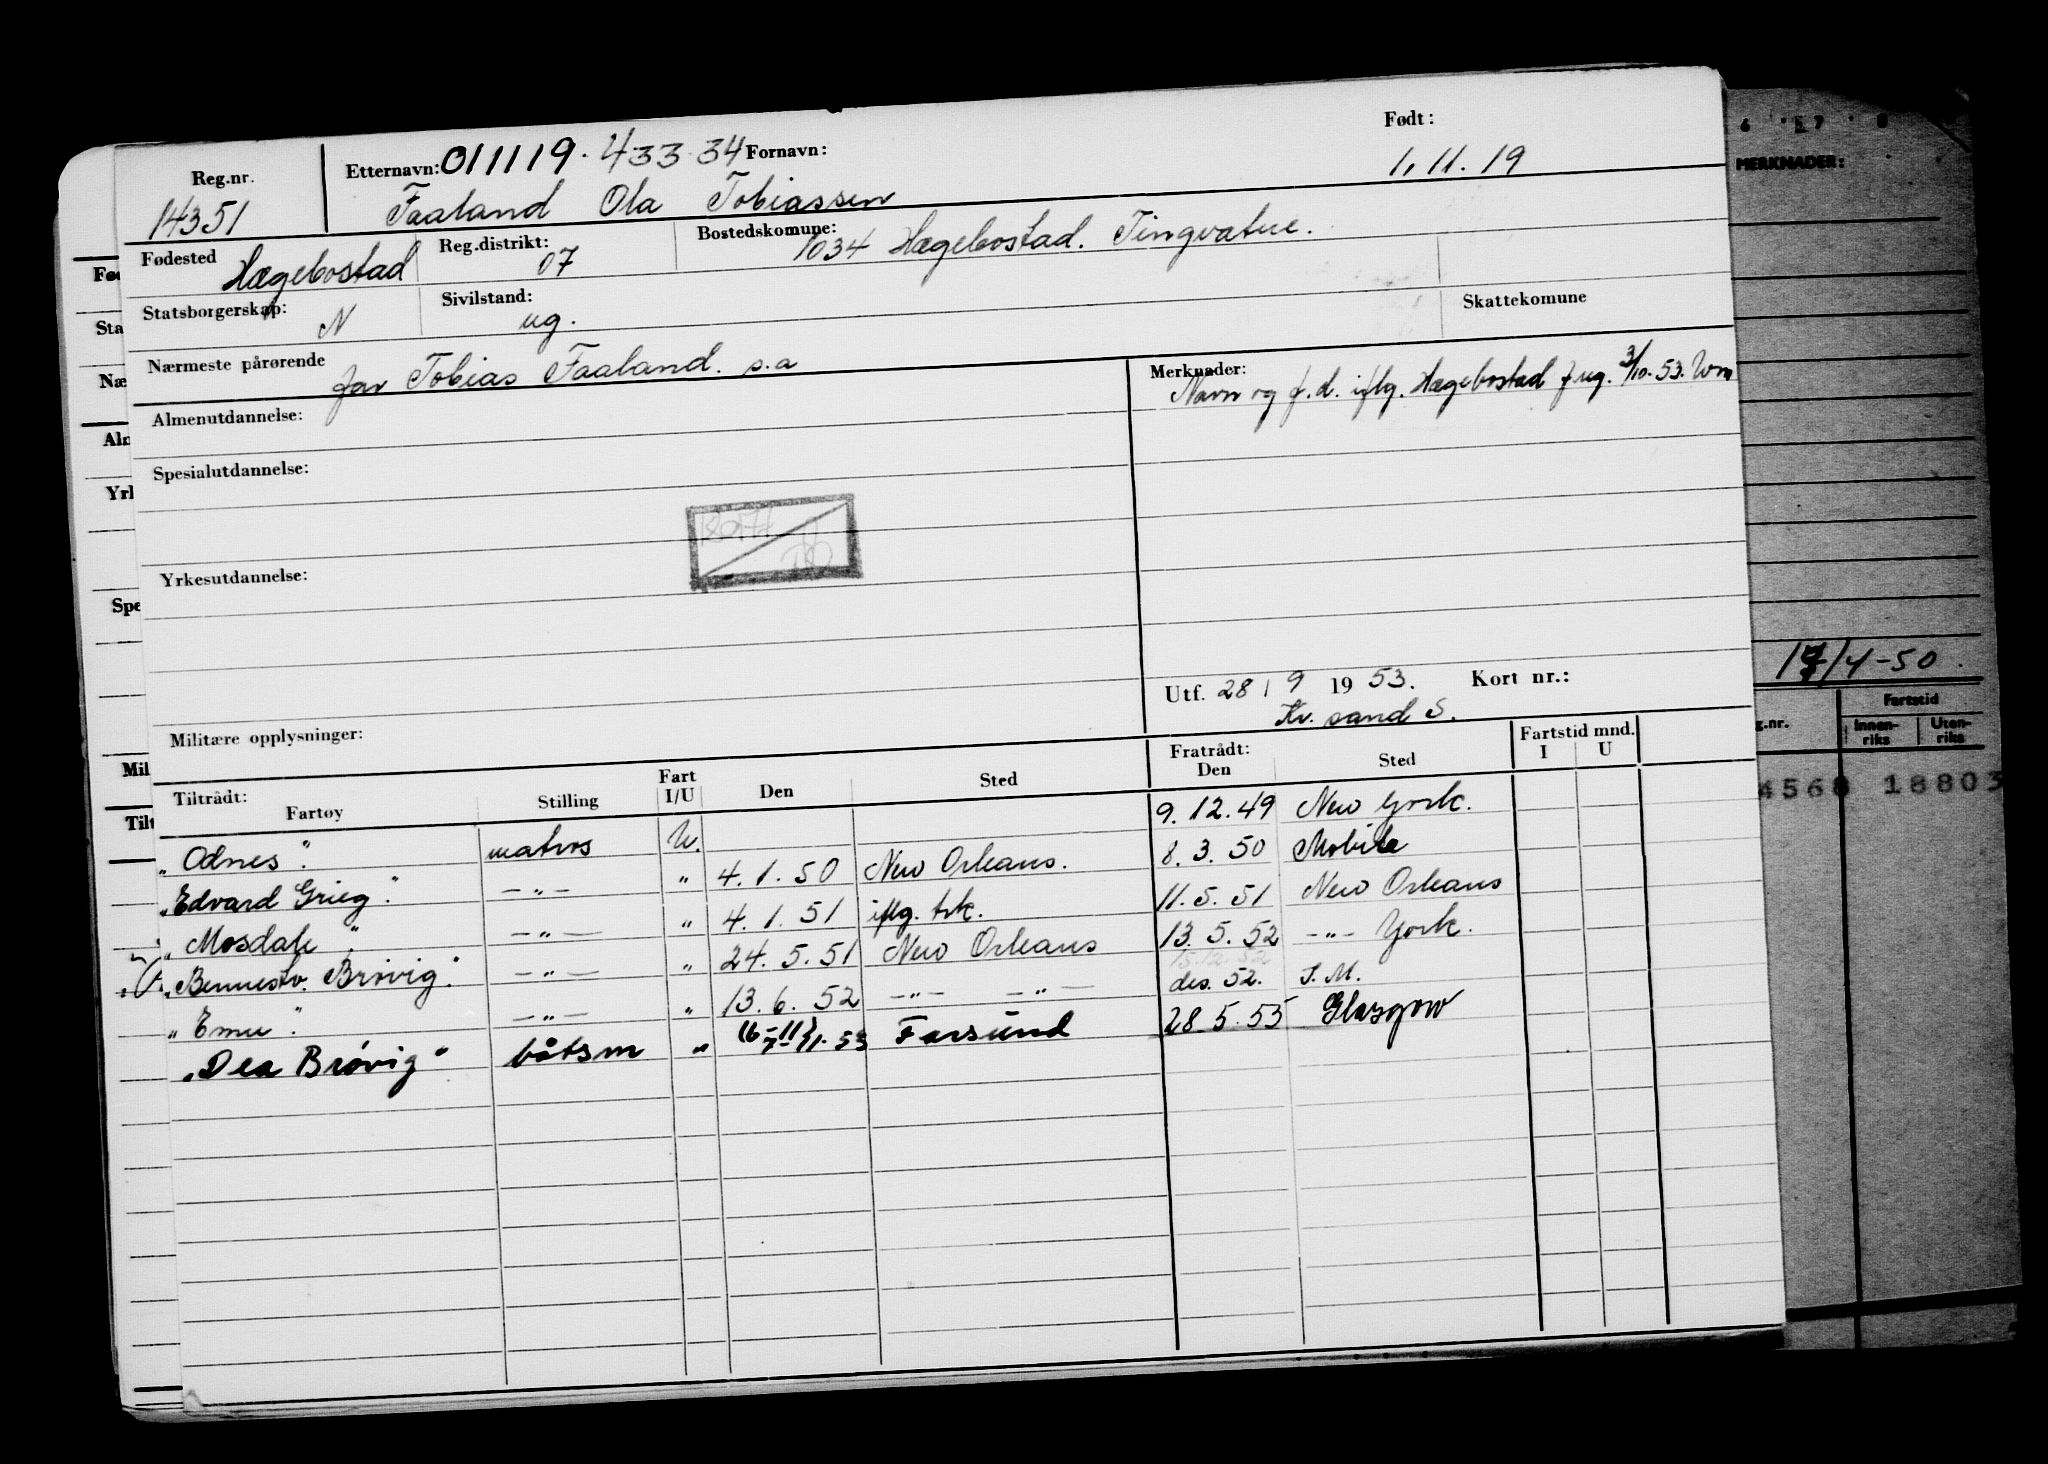 Reg.nr. Etternavn: 011119.433 34 Fornavn: Født:
14351 Faaland Ola Tobiassen 1.11.19
Fødested Hægebostad Reg.distrikt: 07 Bostedskomune: 1034 Hægebostad. Tingvatne.
Statsborgerskap: N Sivilstand: ug. Skattekomune
Nærmeste pårørende far Tobias Faaland. s.a
Merknader: Navn og f.d. iflg. Hægebostad f.reg. 3/10-53.
Almenutdannelse:
Spesialutdannelse:
Yrkesutdannelse:
Utf. 28/9 1953. Kort nr.:
Kr.sand S.
Militære opplysninger:
Tiltrådt: Fratrådt: Fartstid mnd.
Fartøy Stilling Fart I/U Den Sted Den Sted I U
"Odnes". matros U. 9.12.49 New York.
"Edvard Grieg". -"- " 4.1.50 New Orleans. 8.3.50 Mobile
"Mosdale". -"- " 4.1.51 iflg. trk. 11.5.51 New Orleans
"Bennestv. Brøvig". -"- " 24.5.51 New Orleans 13.5.52 -"- York.
"Emu". -"- " 13.6.52 -"- -"- des. 52. S.M.
"Dea Brøvig" båtsm " Farsund 28.5.55 Glasgow
MERKNADER:
/4-50.
Fartstid
g.nr. Innen-riks Uten-riks
4568 18803
Fø
Sta
Næ
Aln
Yrl
Spe
Mil
Tilt